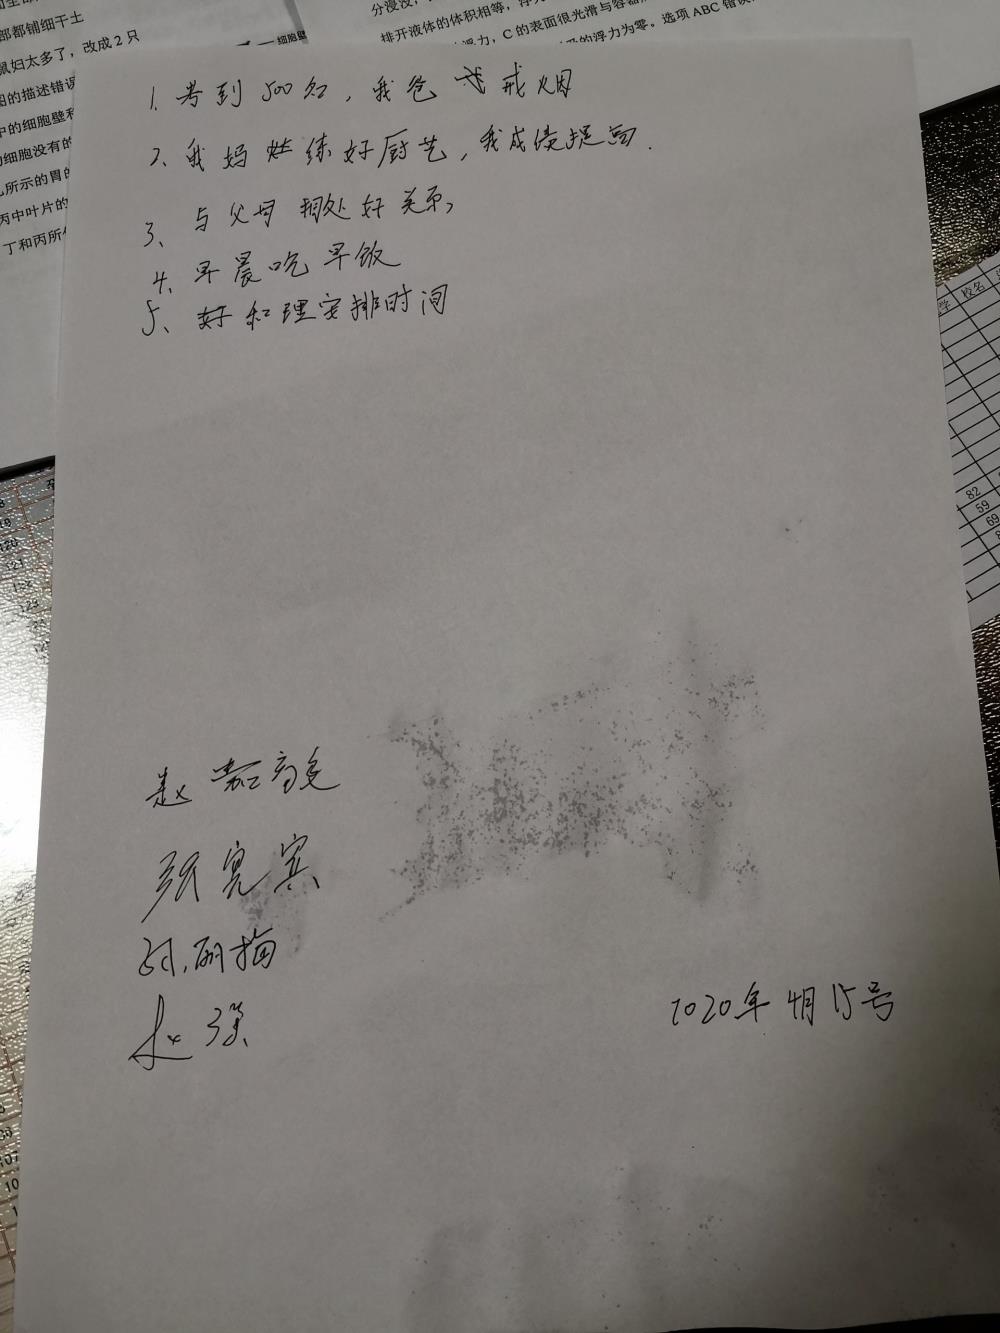 分浸没，
排开液体的体积相等，浮
浮力，C 的表面很光滑与容器
的浮力为零。选项 ABC 错误
部都铺细干土
鼠妇太多了，改成 2 只
图的描述错误
中的细胞壁和
细胞没有的
所示的胃的
丙中叶片的
丁和丙所
细胞壁
1. 考到 500名，我爸 戒烟
2、我妈 练好厨艺，我成绩提高.
3、与父母 相处好关系，
4、早晨吃早饭
5、好和理安排时间
赵
张宽宾
赵强
2020年4月15号
学
校名
82
59
69
120
121
122
123
107